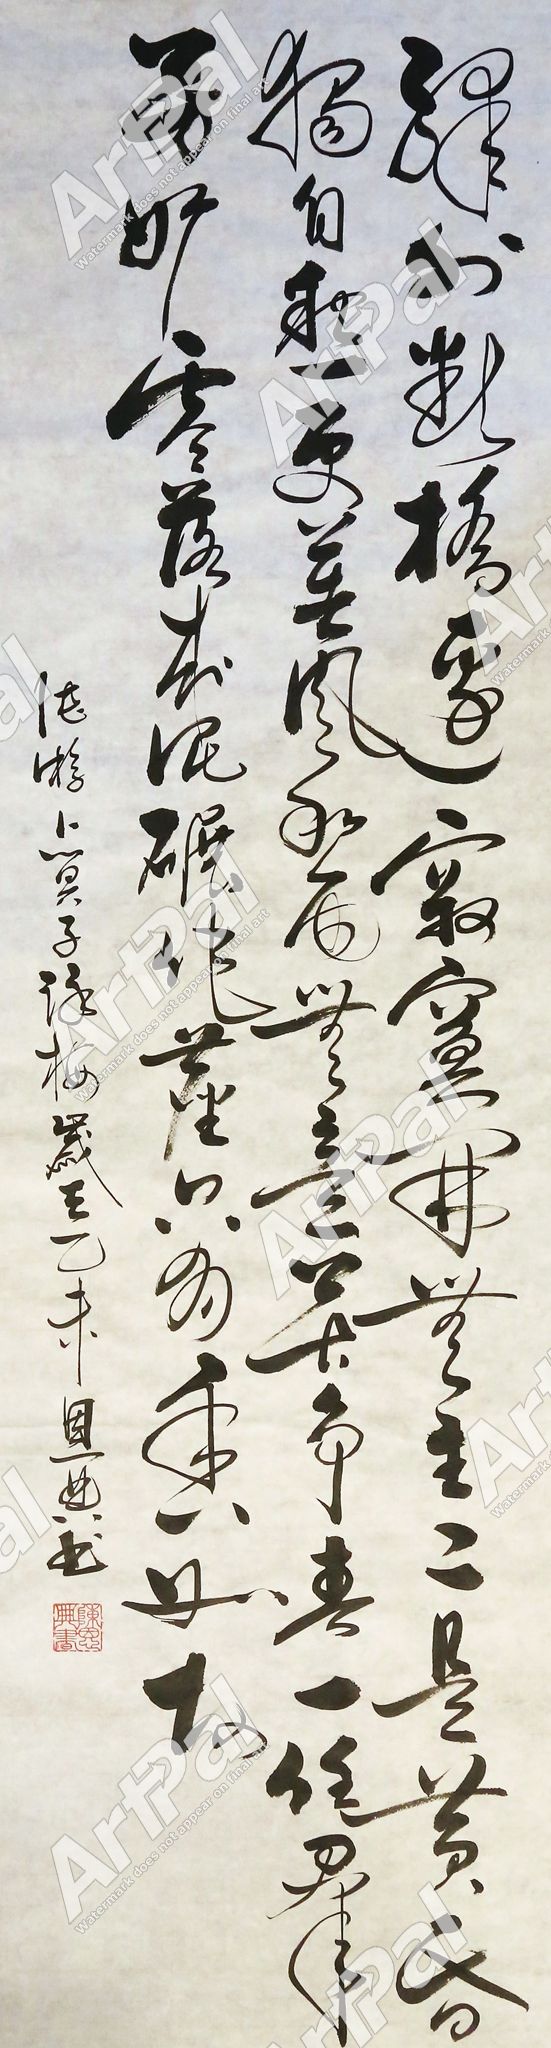 驛外斷橋邊寂寞開無主已是黃昏
獨自愁更著風和雨無意苦爭春一任群
芳妒零落成泥碾作塵只有香如故
陸游卜算子詠梅歲在乙未恩典書
陳恩典書
ArtPal
Watermark does not appear on final art